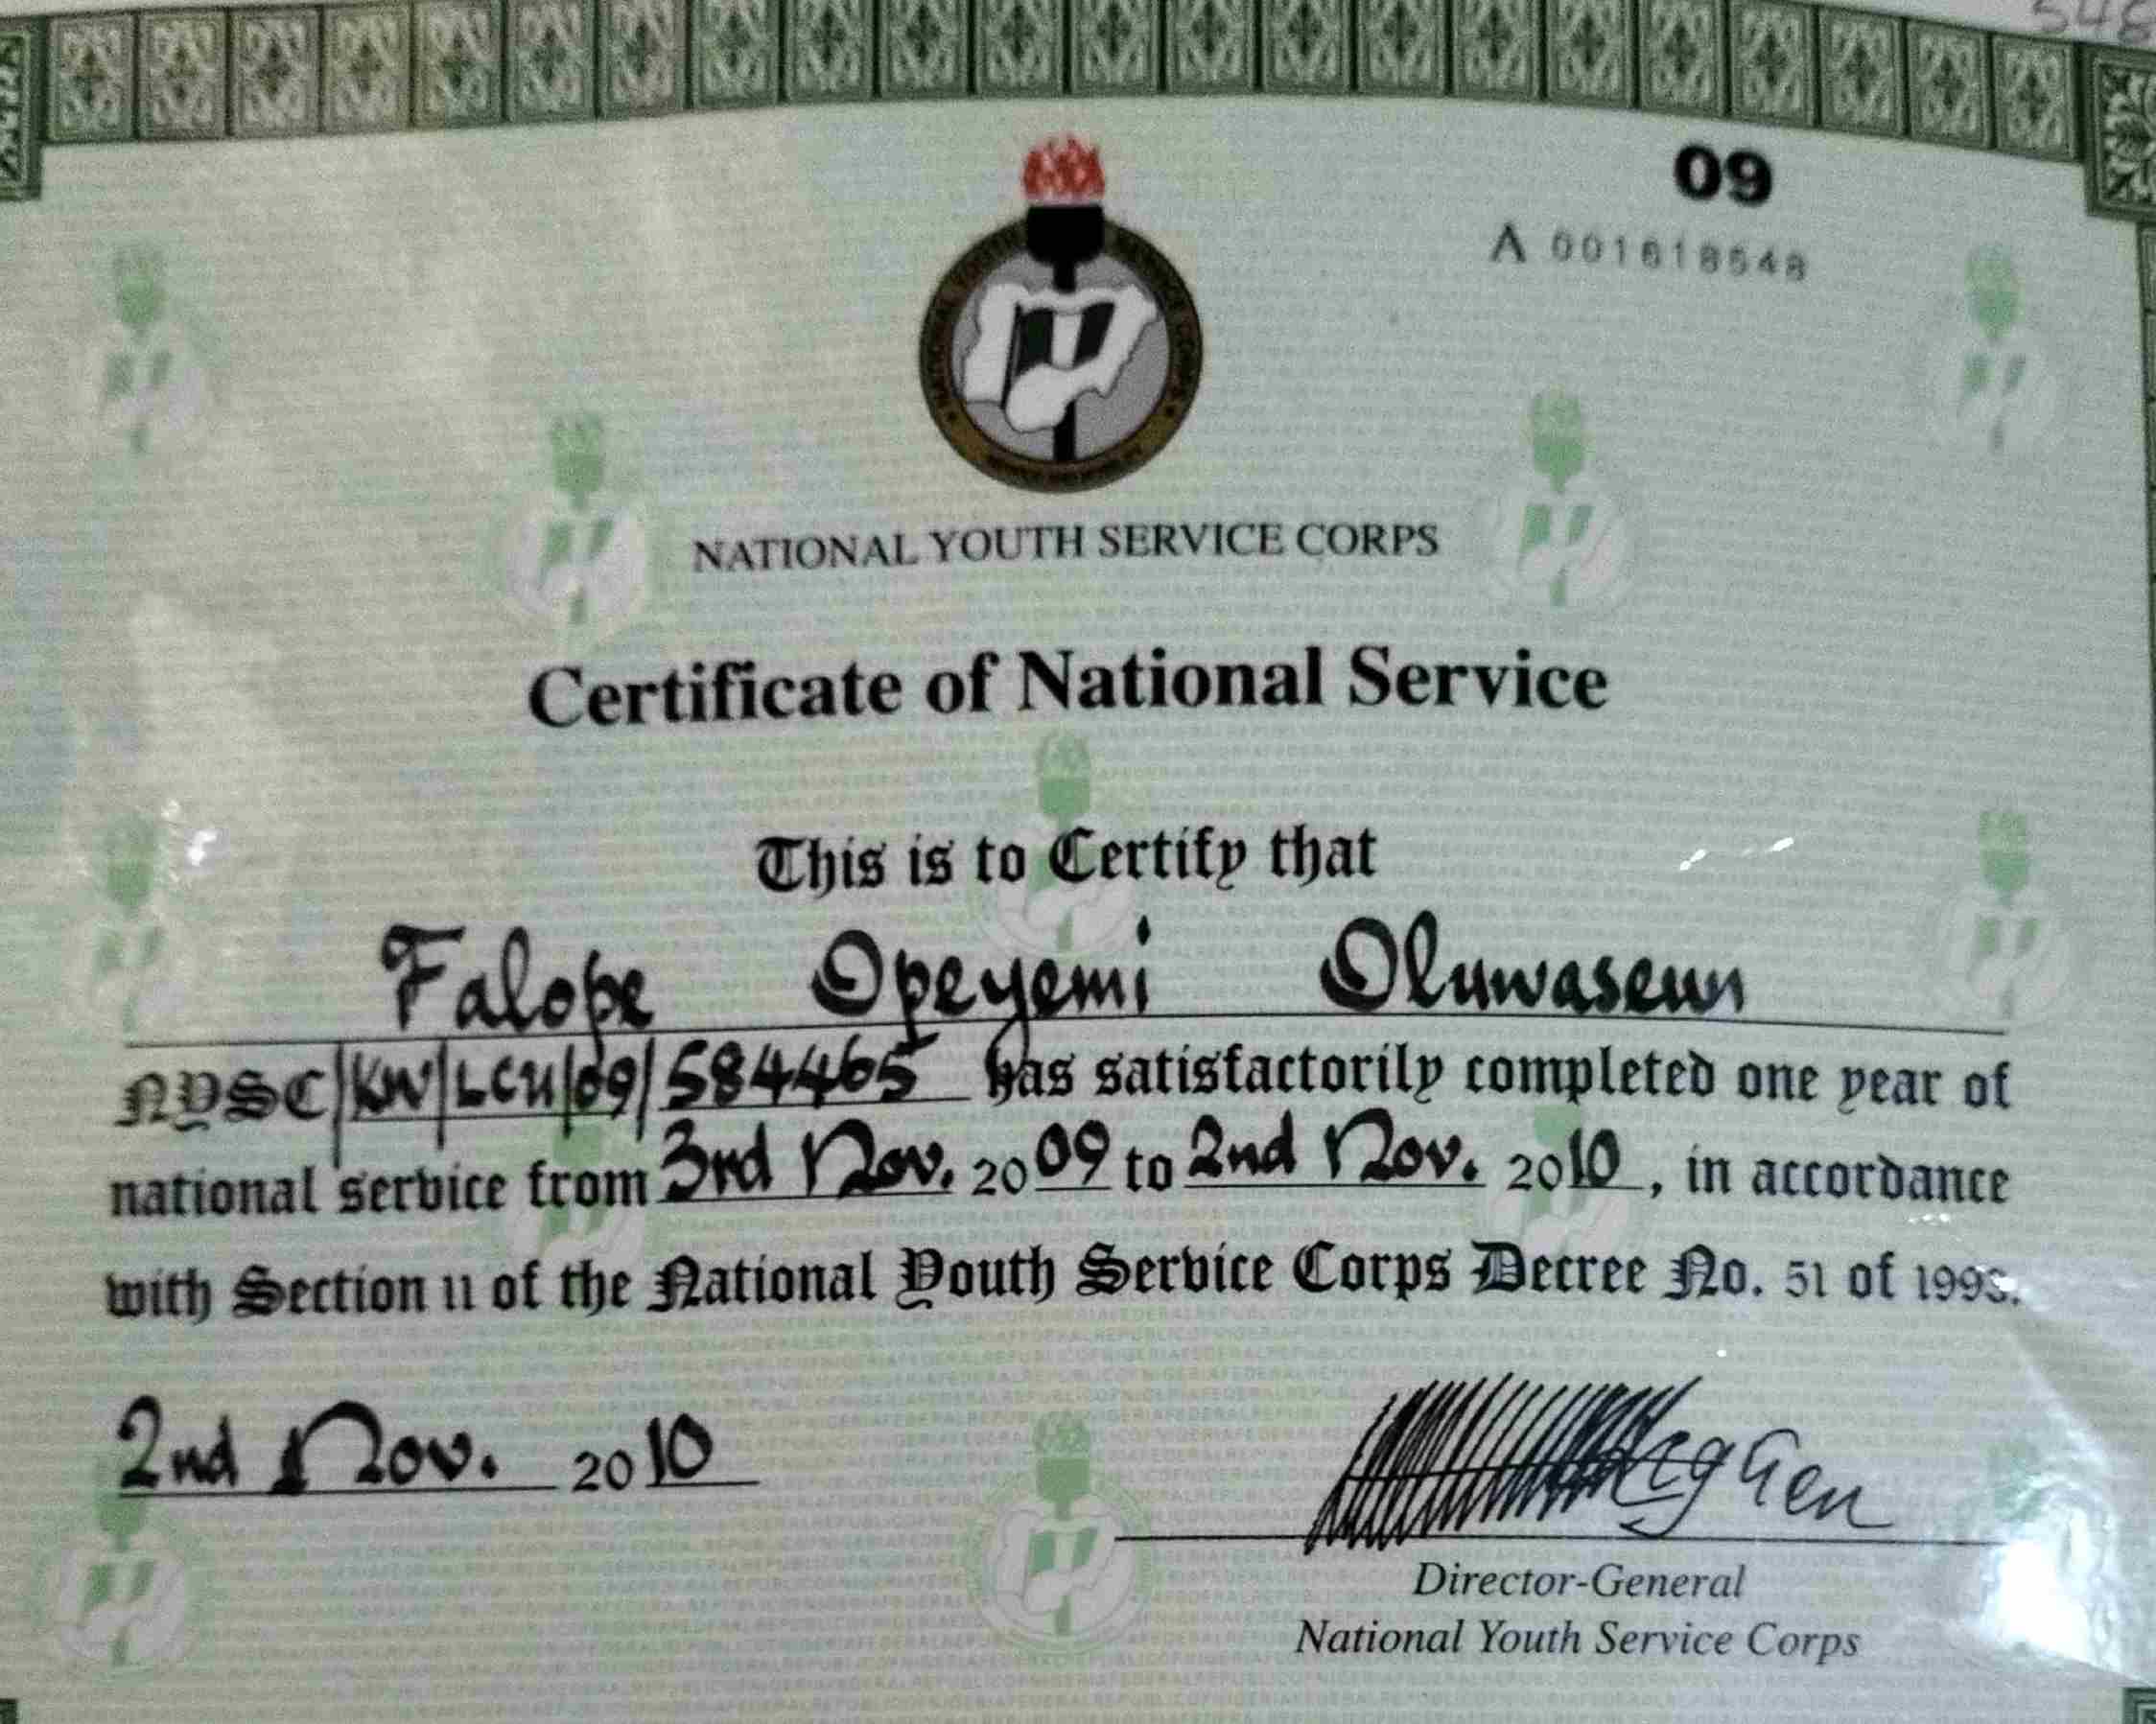 548
09
A 001618548
NATIONAL YOUTH SERVICE CORPS
Certificate of National Service
This is to Certify that
Falope Opeyemi Oluwaseun
NYSC/KW/LCU/09/584465 has satisfactorily completed one year of
national service from 3rd Nov. 2009 to 2nd Nov. 2010, in accordance
with Section 11 of the National Youth Service Corps Decree No. 51 of 1993.
2nd Nov. 2010
Director-General
National Youth Service Corps